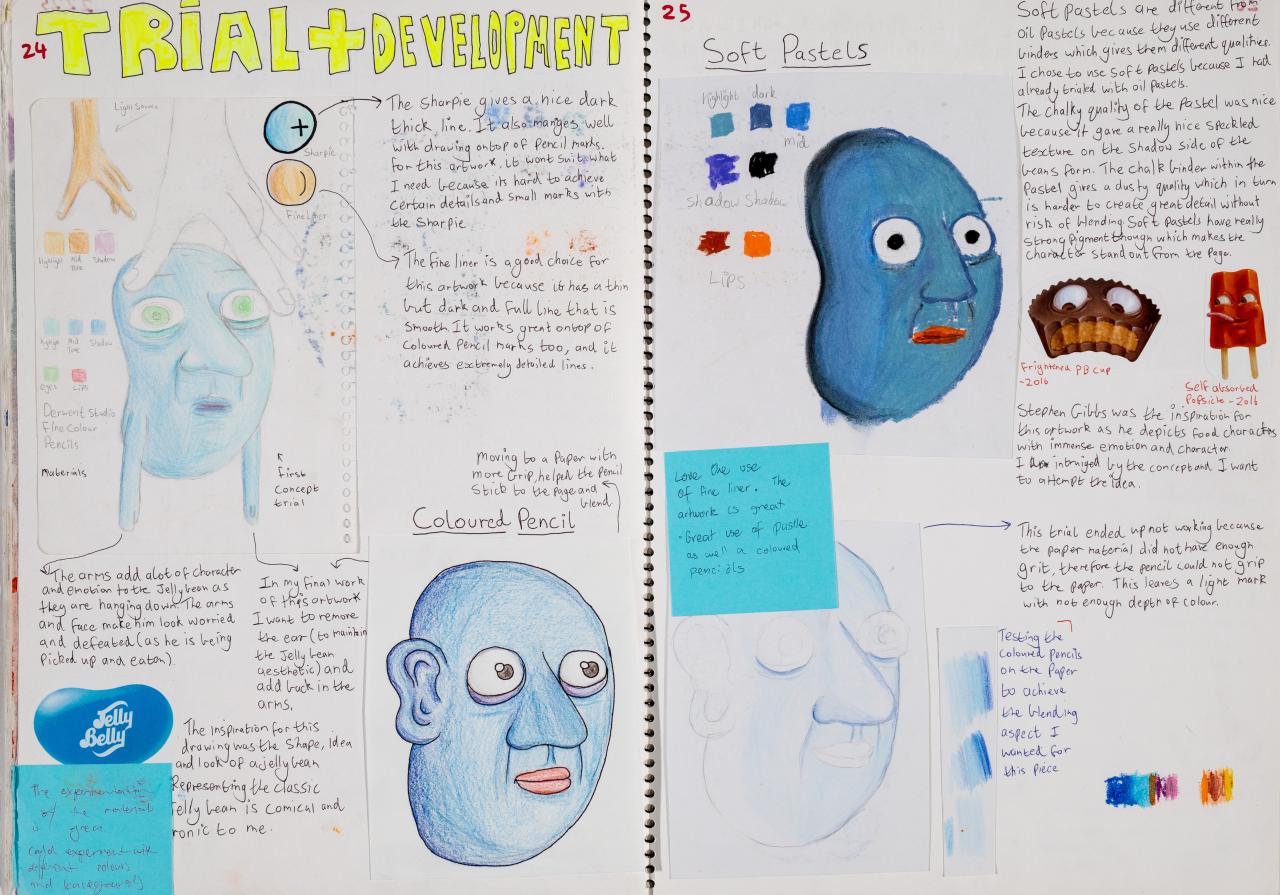 24
TRIAL + DEVELOPMENT
Light Source
Sharpie
Fine Liner
Highlight Mid Tone Shadow
Highlight Mid Tone Shadow
eyes Lips
Derwent Studio
Fine Colour
Pencils
Materials
First
Concept
trial
The Sharpie gives a nice dark
thick line. It also manges well
with drawing ontop of Pencil marks.
For this artwork, it wont suit what
I need because its hard to achieve
certain details and small marks with
the Sharpie.
The fine liner is a good choice for
this artwork because it has a thin
but dark and full line that is
Smooth. It works great ontop of
Coloured Pencil marks too, and it
achieves exstremely detailed lines.
Moving to a Paper with
more Grip, helped the Pencil
Stick to the Page and
blend
Coloured Pencil
The arms add alot of character
and emotion to the Jellybean as
they are hanging down. The arms
and face make him look worried
and defeated (as he is being
Picked up and eaton).
In my final work
of this artwork
I want to remove
the ear (to maintain
the Jelly bean
aesthetic) and
add back in the
arms.
Jelly
Belly
The inspiration for this
drawing was the Shape, idea
and look of a jellybean
Representing the classic
Jelly bean is comical and
ironic to me.
The experimentation
of the material
is great
could experiment with
different colours
and backgrounds
25
Soft Pastels
Highlight dark
mid
Shadow Shadow
Lips
Soft Pastels are different from
oil Pastels because they use different
binders which gives them different qualities.
I chose to use Soft Pastels because I had
already trialed with oil pastels.
The chalky quality of the Pastel was nice
because it gave a really nice speckled
texture on the Shadow side of the
beans form. The chalk binder within the
Pastel gives a dusty quality which in turn
is harder to create great detail without
risk of blending. Soft Pastels have really
strong Pigment though which makes the
character stand out from the Page.
Frightened PB Cup
-2016
Self absorbed
Popsicle - 2016
Stephen Gibbs was the inspiration for
this artwork as he depicts food characters
with immense emotion and character.
I am intruiged by the concept and I want
to attempt the idea.
Love the use
of fine liner. The
artwork is great
- Great use of pastle
as well a coloured
pencilds
This trial ended up not working because
the paper material did not have enough
grit, therefore the pencil could not grip
to the paper. This leaves a light mark
with not enough depth of colour.
Testing the
Coloured Pencils
on the Paper
to achieve
the blending
aspect I
wanted for
this piece